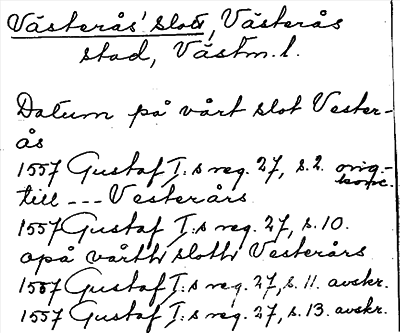 Västerås' slott, Västerås
stad, Västm. l.
Datum på vårt slot Vester-
ås
1557 Gustaf I:s reg. 27, s. 2. orig.-
konc.
till --- Vesterårs
1557 Gustaf I:s reg. 27, s. 10.
opå vårth sloth Vesterårs
1557 Gustaf I:s reg. 27, s. 11. avskr.
1557 Gustaf I:s reg. 27, s. 13. avskr.